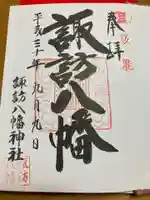 奉拝
諏訪八幡
平成三十年九月九日
諏訪八幡神社